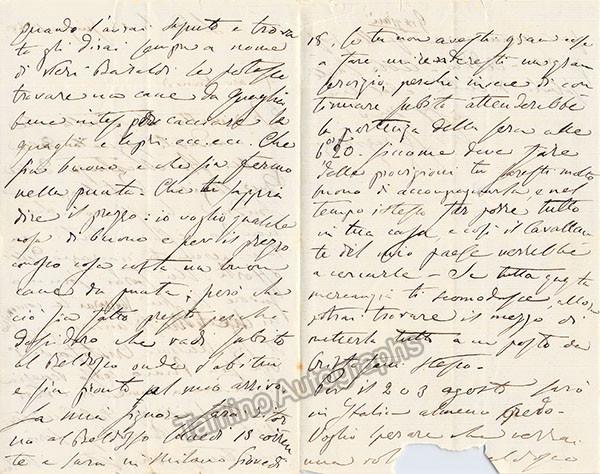 quando l'avrai saputo e trova
to gli dirai sempre a nome
di Neri Baraldi se potesse
trovare un cane da quaglia
bene inteso per cacciare le
quaglie e lepri ecc. ecc. Che
sia buono e che sia fermo
nella punta. Che ti sappia
dire il prezzo: io voglio qualche
cosa di buono e per il prezzo
cosa costa un buon
cane da punta, però che
ciò sia fatto presto perché
desidero che vada subito
al onde s'abitui
e sia pronto pel mio arrivo.
La mia Signora sarà
al 18 corrente
e sarà in Milano giovedì
18. Se tu non avessi gran cosa
a fare mi renderesti un gran
servizio, perché invece di con
tinuare subito attenderebbe
la partenza della sera alle
6 ore 20. Siccome deve fare
delle provvigioni tu saresti molto
buono di accompagnarla e nel
tempo istesso far porre tutto
in tua casa e così il cavallan
te del mio paese verrebbe
a cercarle - Se tutta questa
mercanzia ti scomodasse allora
potrai trovare il mezzo di
metterla tutto a un posto da
stesso.
il 2 o 3 agosto sarò
in Italia almeno credo.
Voglio sperare che verrai
una
Tamino Autographs